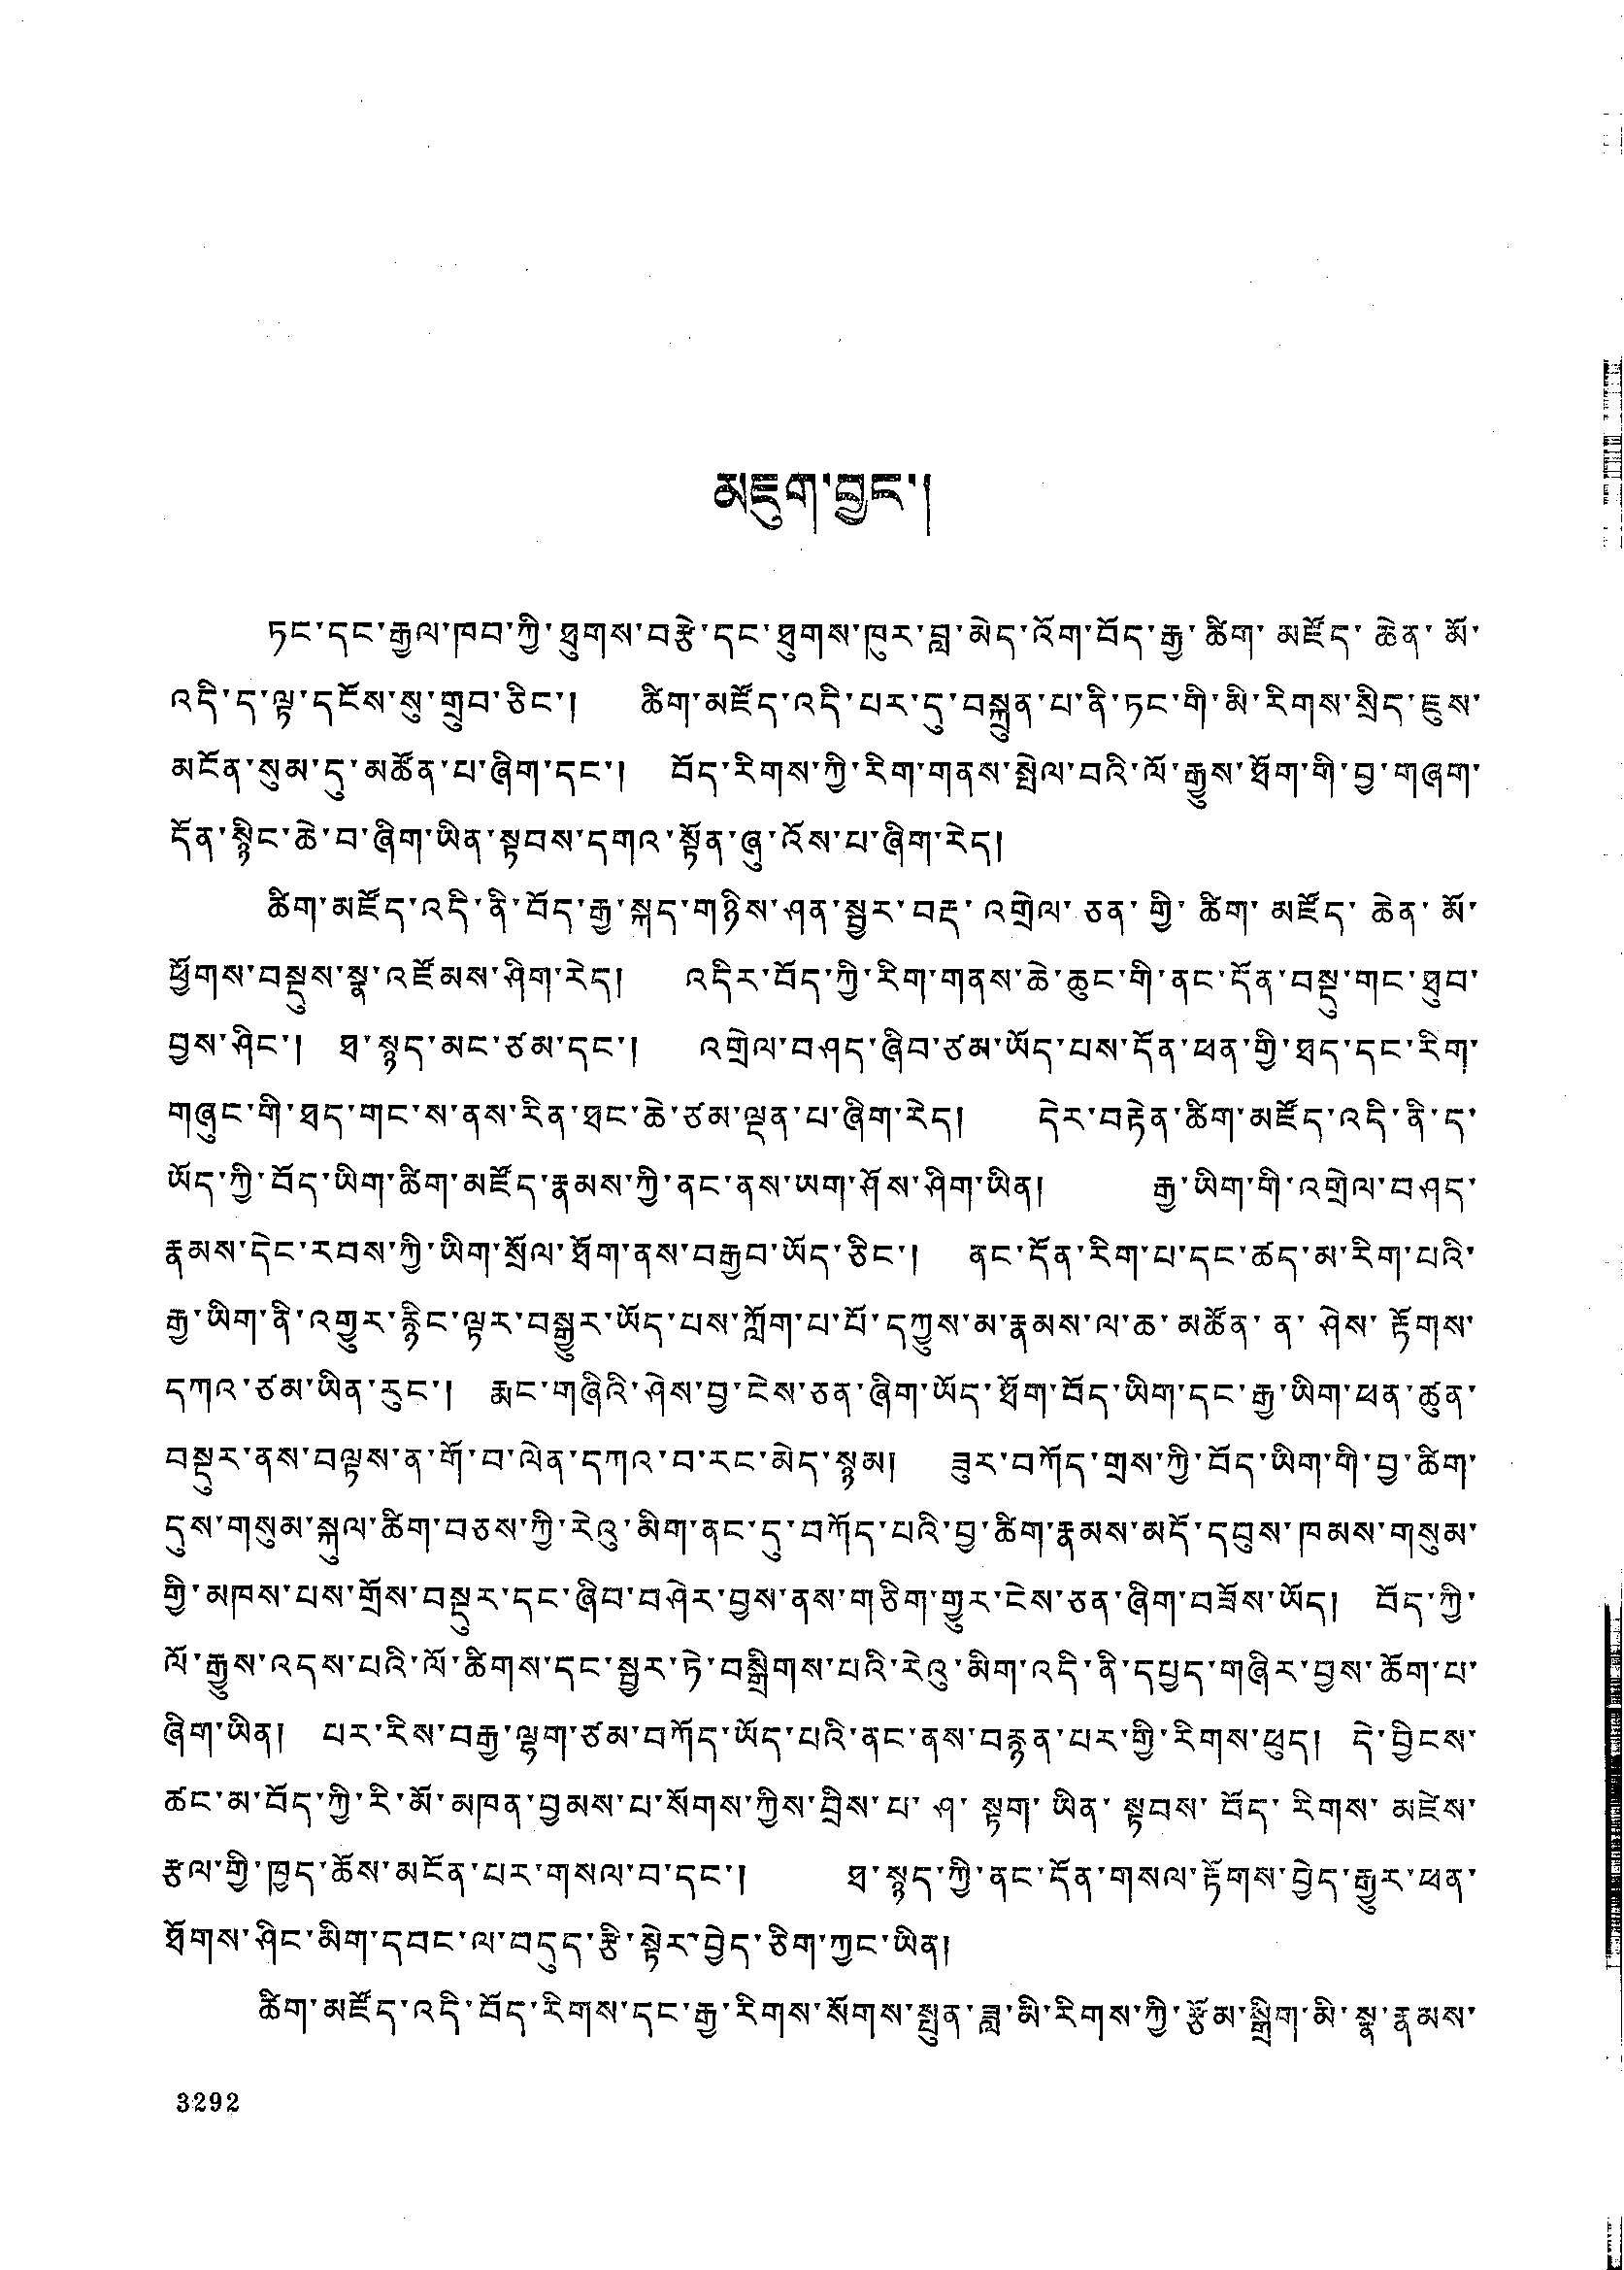 མཇུག་བྱང་།
ཏང་དང་རྒྱལ་ཁབ་ཀྱི་ཐུགས་བརྩེ་དང་ཐུགས་ཁུར་བླ་མེད་འོག་བོད་རྒྱ་ཚིག་མཛོད་ཆེན་མོ་
འདི་ད་ལྟ་དངོས་སུ་གྲུབ་ཅིང་། ཚིག་མཛོད་འདི་པར་དུ་བསྐྲུན་པ་ནི་ཏང་གི་མི་རིགས་སྲིད་ཇུས་
མངོན་སུམ་དུ་མཚོན་པ་ཞིག་དང་། བོད་རིགས་ཀྱི་རིག་གནས་སྤེལ་བའི་ལོ་རྒྱུས་ཐོག་གི་བྱ་གཞག་
དོན་སྙིང་ཆེ་བ་ཞིག་ཡིན་སྟབས་དགའ་སྟོན་ཞུ་འོས་པ་ཞིག་རེད།
ཚིག་མཛོད་འདི་ནི་བོད་རྒྱ་སྐད་གཉིས་ཤན་སྦྱར་བརྡ་འགྲེལ་ཅན་གྱི་ཚིག་མཛོད་ཆེན་མོ་
ཕྱོགས་བསྡུས་སྣ་འཛོམས་ཤིག་རེད། འདིར་བོད་ཀྱི་རིག་གནས་ཆེ་ཆུང་གི་ནང་དོན་བསྡུ་གང་ཐུབ་
བྱས་ཤིང་། ཐ་སྙད་མང་ཙམ་དང་། འགྲེལ་བཤད་ཞིབ་ཙམ་ཡོད་པས་དོན་ཕན་གྱི་ཐད་དང་རིག་
གཞུང་གི་ཐད་གང་ས་ནས་རིན་ཐང་ཆེ་ཙམ་ལྡན་པ་ཞིག་རེད། དེར་བརྟེན་ཚིག་མཛོད་འདི་ནི་ད་
ཡོད་ཀྱི་བོད་ཡིག་ཚིག་མཛོད་རྣམས་ཀྱི་ནང་ནས་ཡག་ཤོས་ཤིག་ཡིན། རྒྱ་ཡིག་གི་འགྲེལ་བཤད་
རྣམས་དེང་རབས་ཀྱི་ཡིག་སྲོལ་ཐོག་ནས་བརྒྱབ་ཡོད་ཅིང་། ནང་དོན་རིག་པ་དང་ཚད་མ་རིག་པའི་
རྒྱ་ཡིག་ནི་འགྱུར་རྙིང་ལྟར་བསྒྱུར་ཡོད་པས་ཀློག་པ་པོ་དཀྱུས་མ་རྣམས་ལ་ཆ་མཚོན་ན་ཤེས་རྟོགས་
དཀའ་ཙམ་ཡིན་རུང་། རྨང་གཞིའི་ཤེས་བྱ་ངེས་ཅན་ཞིག་ཡོད་ཐོག་བོད་ཡིག་དང་རྒྱ་ཡིག་ཕན་ཚུན་
བསྡུར་ནས་བལྟས་ན་གོ་བ་ལེན་དཀའ་བ་རང་མེད་སྙམ། ཟུར་བཀོད་གྲས་ཀྱི་བོད་ཡིག་གི་བྱ་ཚིག་
དུས་གསུམ་སྐུལ་ཚིག་བཅས་ཀྱི་རེའུ་མིག་ནང་དུ་བཀོད་པའི་བྱ་ཚིག་རྣམས་མདོ་དབུས་ཁམས་གསུམ་
གྱི་མཁས་པས་གྲོས་བསྡུར་དང་ཞིབ་བཤེར་བྱས་ནས་གཅིག་གྱུར་ངེས་ཅན་ཞིག་བཟོས་ཡོད། བོད་ཀྱི་
ལོ་རྒྱུས་འདས་པའི་ལོ་ཚིགས་དང་སྦྱར་ཏེ་བསྒྲིགས་པའི་རེའུ་མིག་འདི་ནི་དཔྱད་གཞིར་བྱས་ཆོག་པ་
ཞིག་ཡིན། པར་རིས་བརྒྱ་ལྷག་ཙམ་བཀོད་ཡོད་པའི་ནང་ནས་བརྙན་པར་གྱི་རིགས་ཕུད། དེ་བྱིངས་
ཚང་མ་བོད་ཀྱི་རི་མོ་མཁན་བྱམས་པ་སོགས་ཀྱིས་བྲིས་པ་ཤ་སྟག་ཡིན་སྟབས་བོད་རིགས་མཛེས་
རྩལ་གྱི་ཁྱད་ཆོས་མངོན་པར་གསལ་བ་དང་། ཐ་སྙད་ཀྱི་ནང་དོན་གསལ་རྟོགས་བྱེད་རྒྱུར་ཕན་
ཐོགས་ཤིང་མིག་དབང་ལ་བདུད་རྩི་སྟེར་བྱེད་ཅིག་ཀྱང་ཡིན།
ཚིག་མཛོད་འདི་བོད་རིགས་དང་རྒྱ་རིགས་སོགས་སྤུན་ཟླ་མི་རིགས་ཀྱི་རྩོམ་སྒྲིག་མི་སྣ་རྣམས་
3292